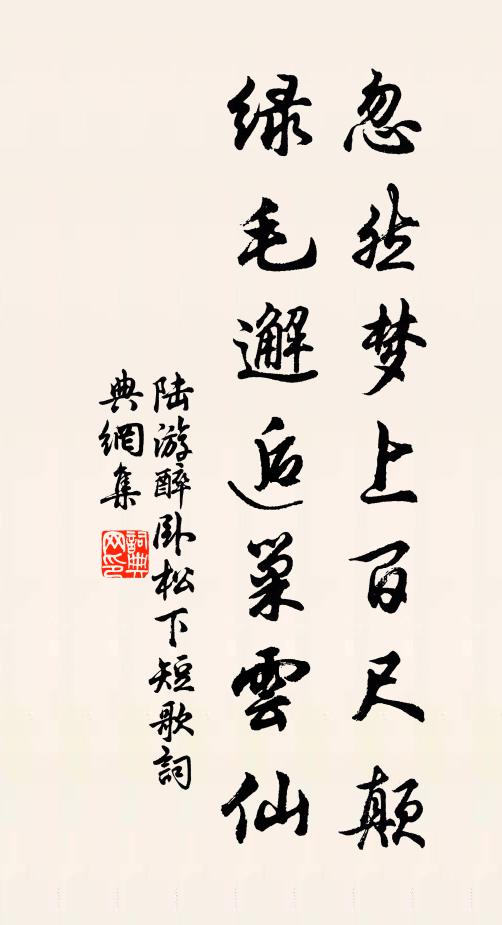 忽然梦上百尺颠
绿毛邂逅巢雲仙
陆游醉卧松下短歌詞
典網集
詞典网印